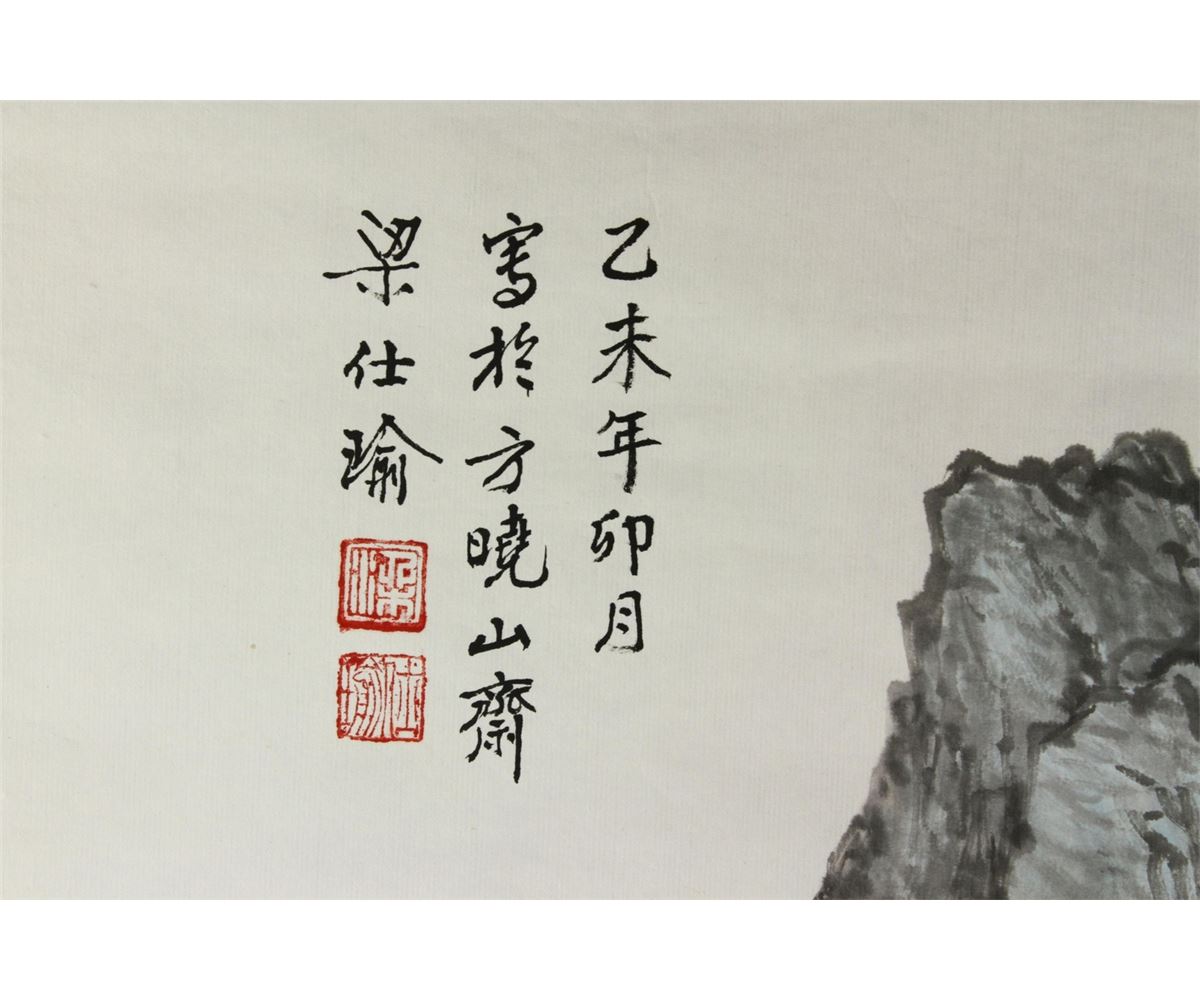 乙未年卯月
寫於方曉山齋
梁仕瑜
梁
仕瑜